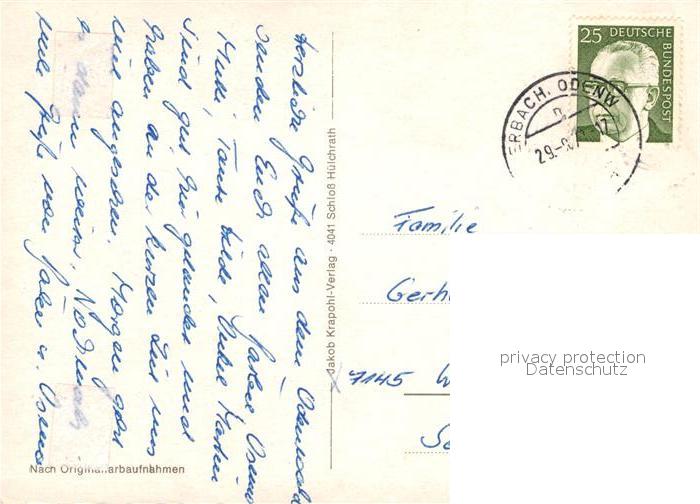 Herzliche Grüße aus dem Odenwald
senden Euch allen
Mutti, Tante Hilde, Onkel Martin
Sind gut hier gelandet und
haben in der kurzen Zeit uns
viel angesehen. Morgen geht
es dann weiter. Nochmals
viele Grüße von
Nach Originalfarbaufnahmen
Jakob Krapohl-Verlag · 4041 Schloß Hülchrath
25 DEUTSCHE
BUNDESPOST
ERBACH, ODENW
29.
Familie
Gerh
7145 W
privacy protection
Datenschutz